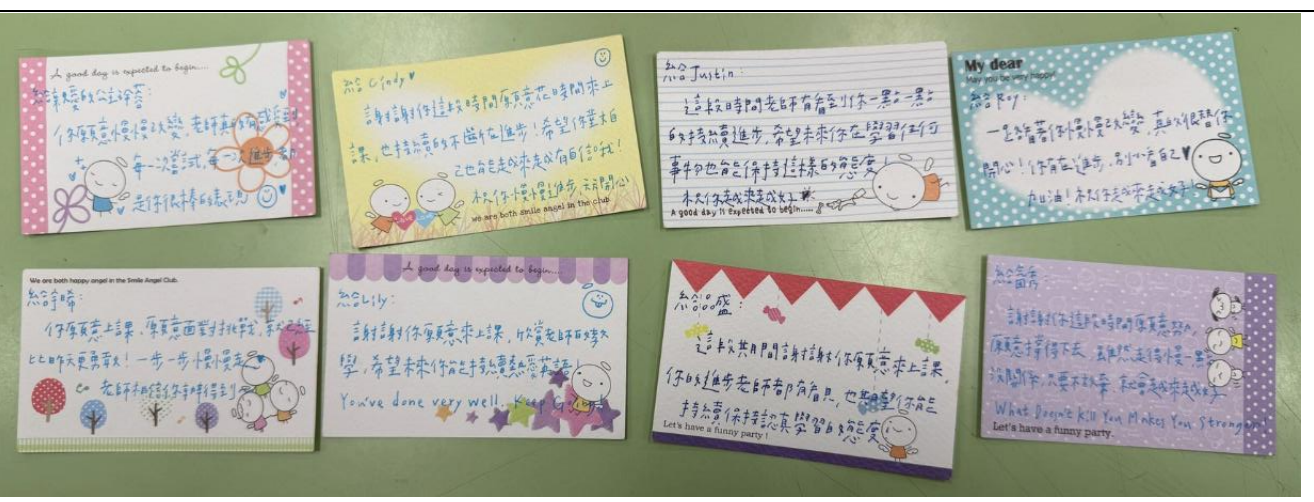 A good day is expected to begin....
給親愛的公主
你願意慢慢改變,老師真的有感受到
每一次嘗試,每一次進步都
是你很棒的表現
給Cindy♥
謝謝你這段時間願意花時間來上
課,也持續的不斷在進步!希望你對自
己也能越來越有自信哦!
祝你慢慢進步,天天開心
we are both smile angel in the club
給Justin:
這段時間老師有看到你一點一點
的持續進步,希望未來你在學習任何
事物也能保持這樣的態度!
祝你越來越好
A good day is expected to begin.....
My dear
May you be very happy!
給Roy:
一路陪著你慢慢改變,真的很替你
開心!你有在進步,別小看自己♥
加油!祝你越來越好!
We are both happy angel in the Smile Angel Club.
你願意上課、願意面對挑戰,就已經
比昨天更勇敢!一步一步慢慢走
老師相信你辦得到
A good day is expected to begin....
給Lily:
謝謝你願意來上課,欣賞老師的教
學,希望未來你能持續熱愛英語!
You've done very well. Keep Going!
盛:
這段期間謝謝你願意來上課,
你的進步老師都有看見,也期望你能
持續保持認真學習的態度
Let's have a funny party!
謝謝你這段時間願意努力,
願意撐下去,雖然走得慢一點
沒關係,只要不放棄,就會越來越好
What Doesn't Kill You Makes You Stronger!
Let's have a funny party.